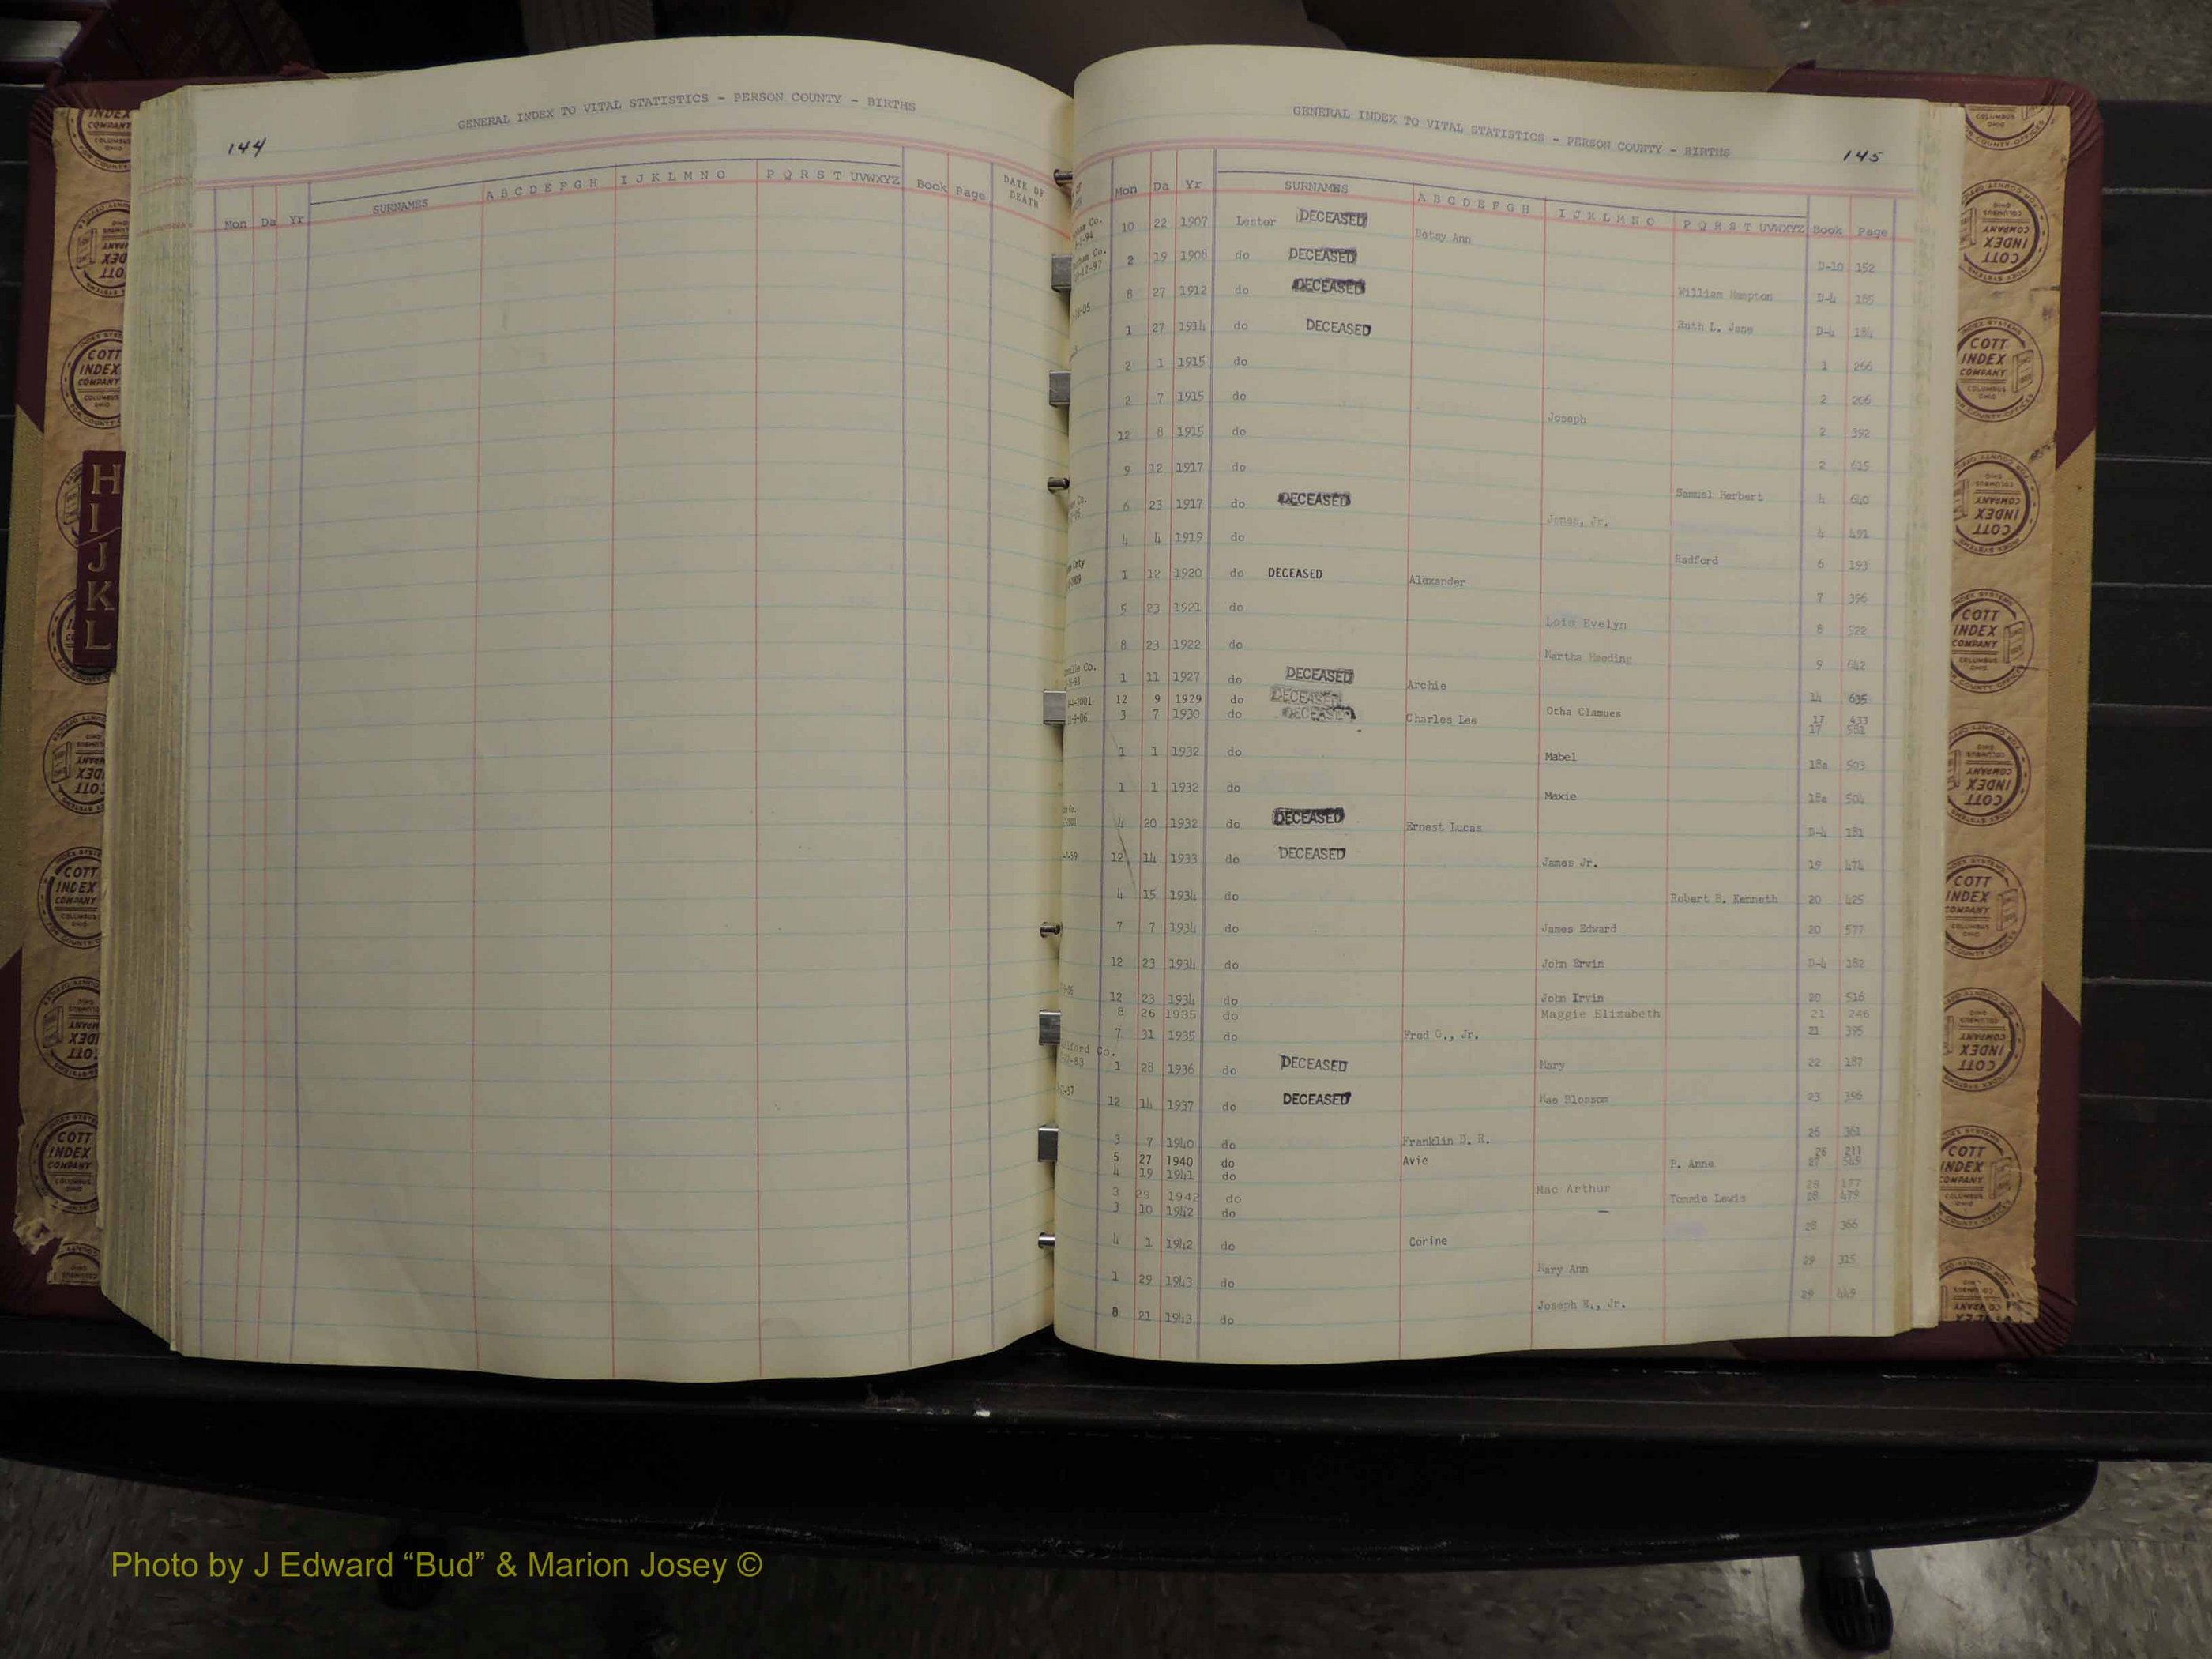 GENERAL INDEX TO VITAL STATISTICS - PERSON COUNTY - BIRTHS
144
Mon Da Yr SURNAMES A B C D E F G H I J K L M N O P Q R S T U V W X Y Z Book Page DATE OF DEATH
H
I
J
K
L
GENERAL INDEX TO VITAL STATISTICS - PERSON COUNTY - BIRTHS
145
Mon Da Yr SURNAMES A B C D E F G H I J K L M N O P Q R S T U V W X Y Z Book Page
10 22 1907 Lester DECEASED Betsy Ann D-10 152
2 19 1908 do DECEASED William Hampton D-4 185
8 27 1912 do DECEASED Ruth L. Jane D-4 184
1 27 1914 do DECEASED 1 266
2 1 1915 do 2 206
2 7 1915 do Joseph 2 392
12 8 1915 do 2 615
9 12 1917 do Samuel Herbert 4 640
6 23 1917 do DECEASED Jones, Jr. 4 491
4 4 1919 do Radford 6 193
1 12 1920 do DECEASED Alexander 7 396
5 23 1921 do Lois Evelyn 8 522
8 23 1922 do Martha 9 642
1 11 1927 do DECEASED Archie 14 635
12 9 1929 do DECEASED Otha Clamues 17 433
3 7 1930 do DECEASED Charles Lee 17 581
1 1 1932 do Mabel 18a 503
1 1 1932 do Maxie 18a 504
4 20 1932 do DECEASED Ernest Lucas D-4 181
12 14 1933 do DECEASED James Jr. 19 474
4 15 1934 do Robert B. Kenneth 20 425
7 7 1934 do James Edward 20 577
12 23 1934 do John Ervin D-4 182
12 23 1934 do John Irvin 20 516
8 26 1935 do Maggie Elizabeth 21 246
7 31 1935 do Fred O., Jr. 21 395
1 28 1936 do DECEASED Mary 22 187
12 14 1937 do DECEASED Mae Blossom 23 356
3 7 1940 do Franklin D. R. 26 361
5 27 1940 do Avie 26 211
4 19 1941 do P. Anne 27 545
3 29 1942 do Mac Arthur 28 177
3 10 1942 do Tommie Lewis 28 479
4 1 1942 do Corine 28 366
1 29 1943 do Mary Ann 29 315
8 21 1943 do Joseph E., Jr. 29 449
COTT INDEX COMPANY
COLUMBUS OHIO
Photo by J Edward “Bud” & Marion Josey ©